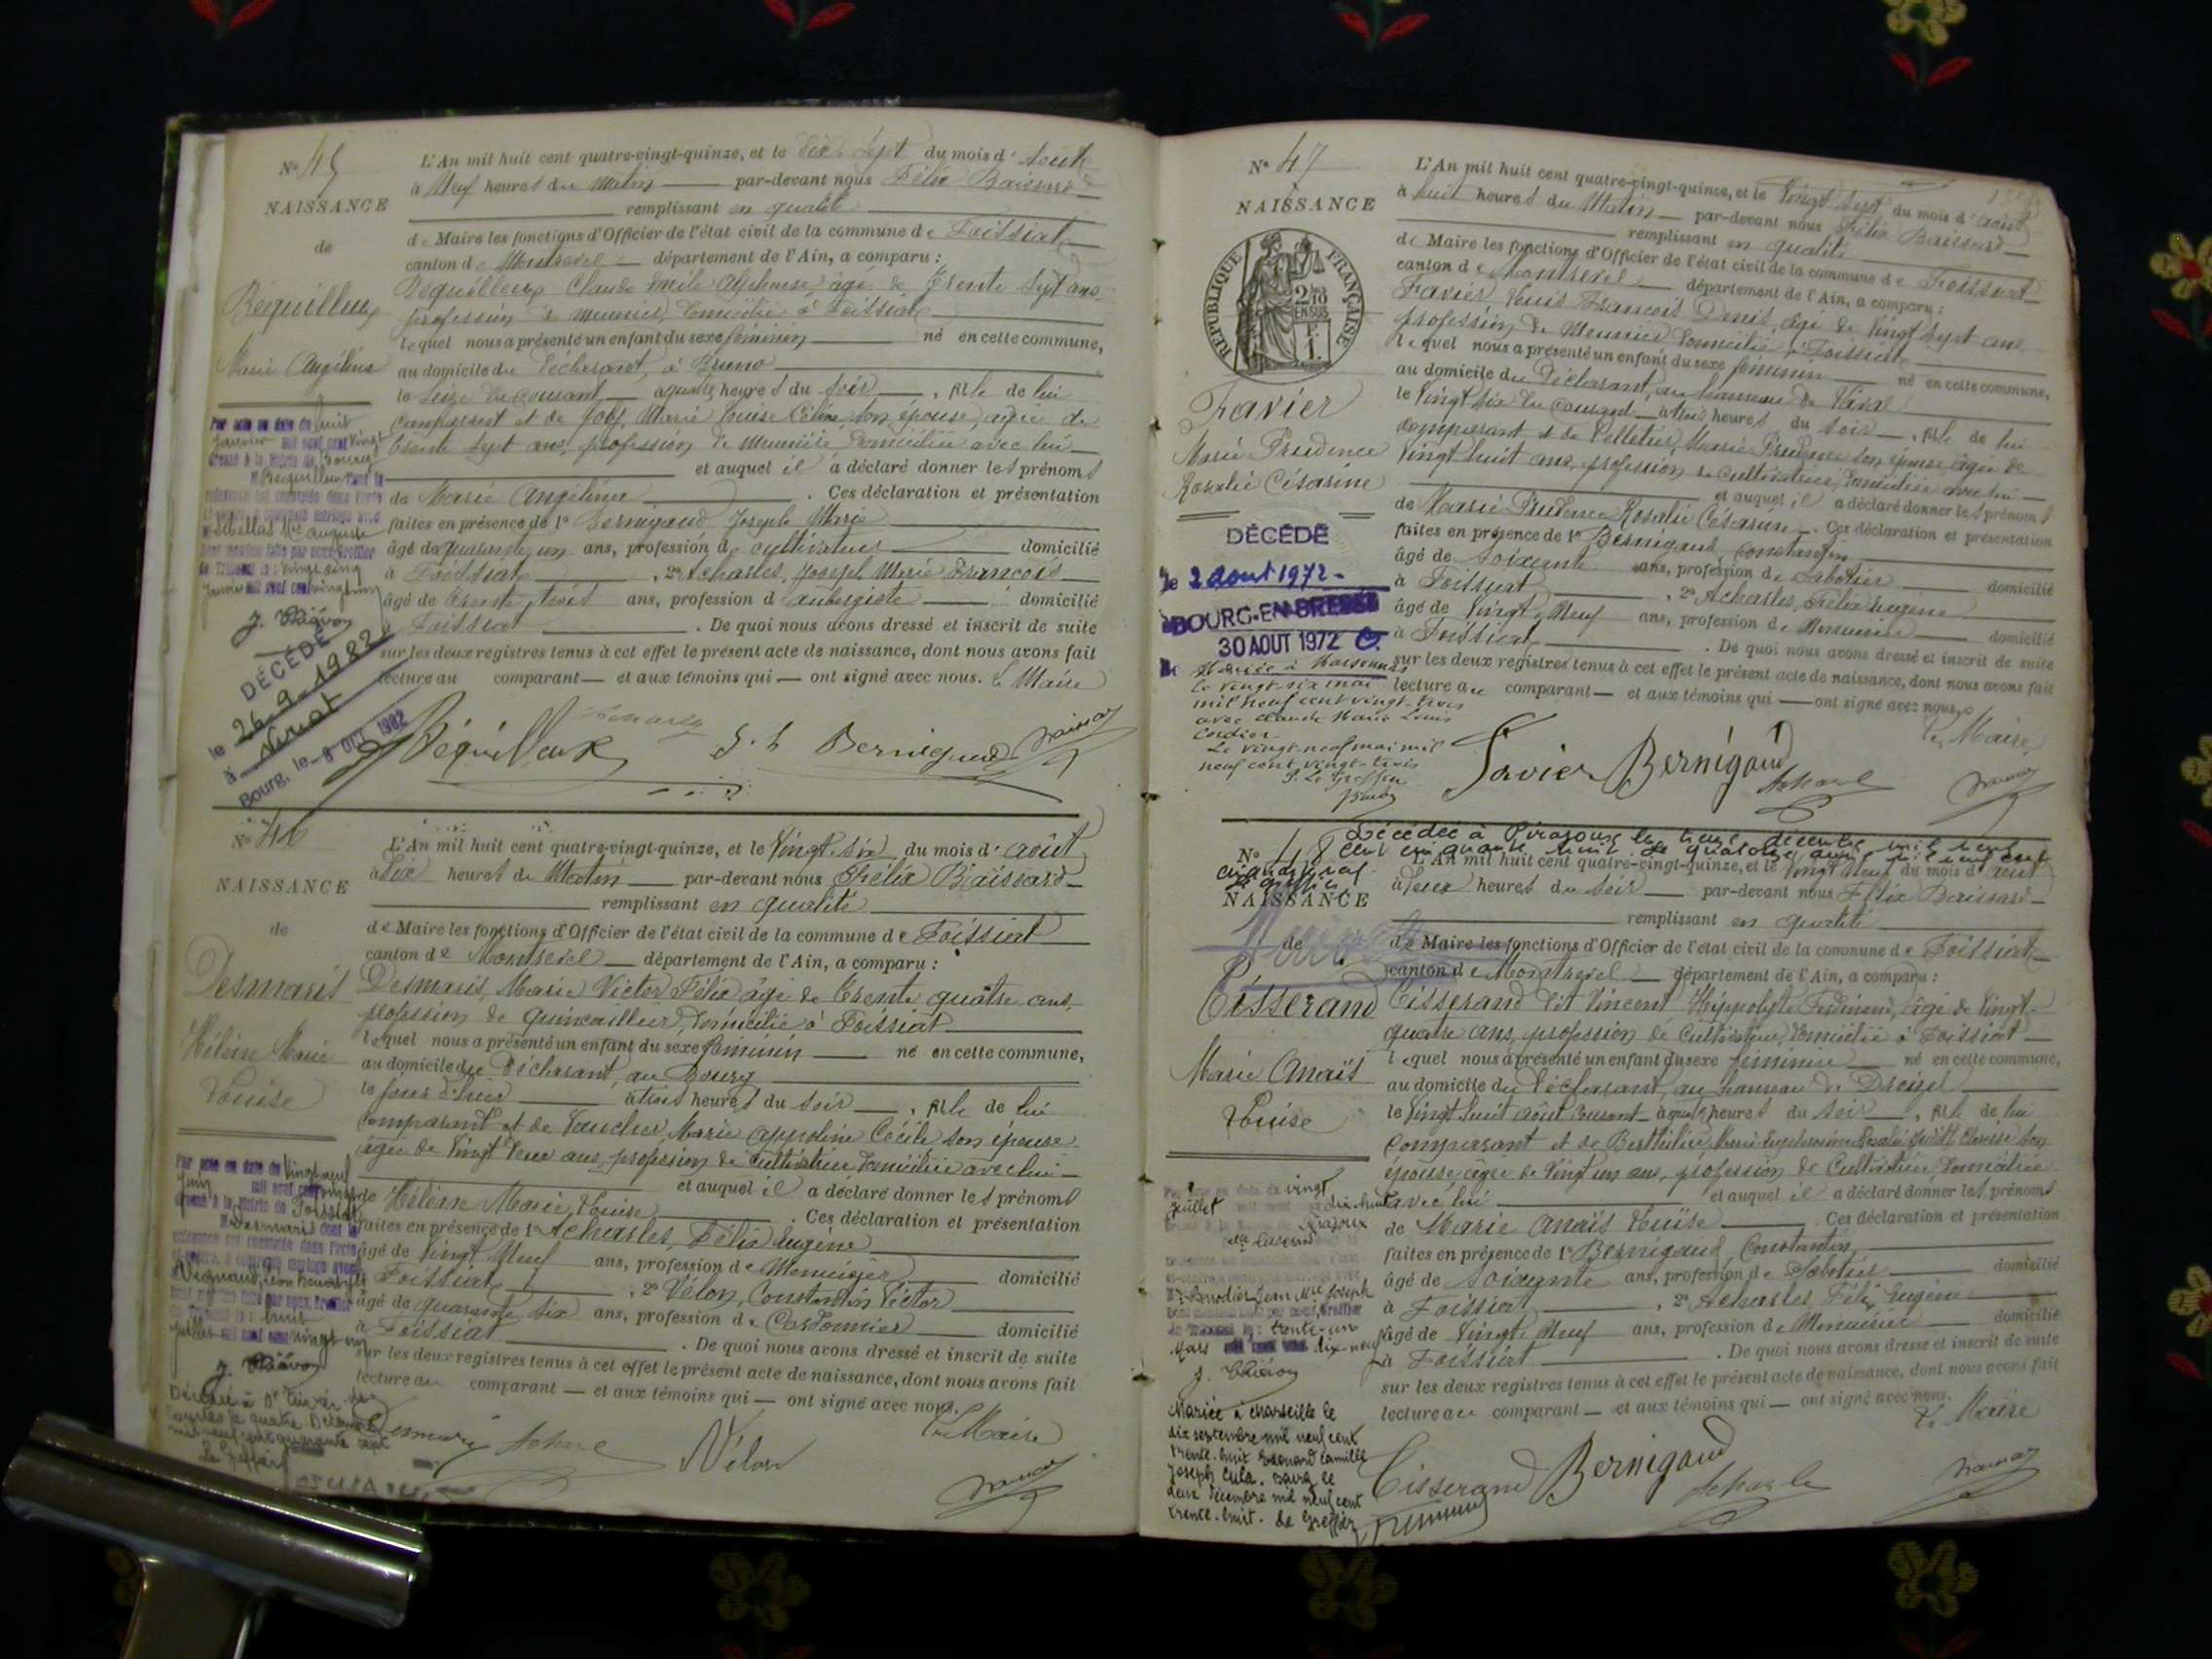 N° 45
NAISSANCE
de
Béquilleux
Marie Angélina
L'An mil huit cent quatre-vingt-quinze, et le Dix-Sept du mois d'Août
à Neuf heures du Matin par-devant nous Félix Baissard
remplissant en qualité
de Maire les fonctions d'Officier de l'état civil de la commune de Foissiat
canton de Montrevel département de l'Ain, a comparu :
Béquilleux Claude Emile Alphonse, âgé de Trente Sept ans
profession de Meunier, Domicilié à Foissiat
lequel nous a présenté un enfant du sexe féminin né en cette commune,
au domicile du Déclarant, à
le Seize du courant à quatre heures du soir, fille de lui
comparant et de Marie Louise son épouse, âgée de
trente sept ans, profession de Meunière Domiciliée avec lui
et auquel il a déclaré donner les prénoms
de Marie Angélina. Ces déclaration et présentation
faites en présence de 1° Bernigaud Joseph Marie
âgé de quarante un ans, profession de cultivateur domicilié
à Foissiat, 2° Acharles, Joseph Marie François
âgé de trente trois ans, profession d'aubergiste domicilié
à Foissiat. De quoi nous avons dressé et inscrit de suite
sur les deux registres tenus à cet effet le présent acte de naissance, dont nous avons fait
lecture au comparant et aux témoins qui ont signé avec nous. Le Maire
DÉCÉDÉ
le 26-9-1982
à Viriat
Bourg, le -8 OCT 1982
Béquilleux J. h Bernigaud
N° 46
NAISSANCE
de
Desmaris
Hélène Marie
Louise
L'An mil huit cent quatre-vingt-quinze, et le Vingt-six du mois d'août
à Dix heures du Matin par-devant nous Félix Baissard
remplissant en qualité
de Maire les fonctions d'Officier de l'état civil de la commune de Foissiat
canton de Montrevel département de l'Ain, a comparu :
Desmaris, Marie Victor Félix âgé de Trente quatre ans,
profession de quincaillier, Domicilié à Foissiat
lequel nous a présenté un enfant du sexe féminin né en cette commune,
au domicile du Déclarant, au Bourg
le jour d'hier à trois heures du soir, fille de lui
comparant et de Vaucher Marie Appoline Cécile son épouse
âgée de Vingt Deux ans, profession de Domiciliée avec lui
et auquel il a déclaré donner les prénoms
de Hélène Marie Louise. Ces déclaration et présentation
faites en présence de 1° Acharles, Félix Eugène
âgé de Vingt Neuf ans, profession de Menuisier domicilié
à Foissiat, 2° Vélon, Constantin Victor
âgé de quarante six ans, profession de Cordonnier domicilié
à Foissiat. De quoi nous avons dressé et inscrit de suite
sur les deux registres tenus à cet effet le présent acte de naissance, dont nous avons fait
lecture au comparant et aux témoins qui ont signé avec nous.
Le Maire
Desmaris Acharle Vélon
N° 47
NAISSANCE
RÉPUBLIQUE FRANÇAISE
2/10 EN SUS
F. 1.
Favier
Marie Prudence
Rosalie Césarine
L'An mil huit cent quatre-vingt-quinze, et le Vingt Sept du mois d'août
à huit heures du Matin par-devant nous Félix Baissard
remplissant en qualité
de Maire les fonctions d'Officier de l'état civil de la commune de Foissiat
canton de Montrevel département de l'Ain, a comparu :
Favier Louis François Denis, âgé de Vingt Sept ans
profession de Menuisier Domicilié à Foissiat
lequel nous a présenté un enfant du sexe féminin né en cette commune,
au domicile du Déclarant, au hameau de
le Vingt six du courant à trois heures du soir, fille de lui
comparant et de Pelletier, Marie Prudence son épouse âgée de
Vingt huit ans, profession de cultivatrice, Domiciliée avec lui
et auquel il a déclaré donner les prénoms
de Marie Prudence Rosalie Césarine. Ces déclaration et présentation
faites en présence de 1° Bernigaud, Constantin
âgé de Soixante ans, profession de Sabotier domicilié
à Foissiat, 2° Acharles, Félix Eugène
âgé de Vingt Neuf ans, profession de Menuisier domicilié
à Foissiat. De quoi nous avons dressé et inscrit de suite
sur les deux registres tenus à cet effet le présent acte de naissance, dont nous avons fait
lecture au comparant et aux témoins qui ont signé avec nous.
Le Maire
DÉCÉDÉ
le 2 aout 1972
BOURG-EN-BRESSE
30 AOUT 1972
Mariée à
le vingt-six mai
mil neuf cent vingt-trois
avec Claude Marie Louis
Cordier
Le vingt-neuf mai mil
neuf cent vingt-trois
Favier Bernigaud Acharle
N° 48
Décédée à Pirajoux le décembre mil neuf
cent cinquante huit. Le quatorze mil neuf cent
NAISSANCE
de
Tisserand
Marie Anaïs
Louise
L'An mil huit cent quatre-vingt-quinze, et le Vingt Neuf du mois d'août
à Deux heures du soir par-devant nous Félix Baissard
remplissant en qualité
de Maire les fonctions d'Officier de l'état civil de la commune de Foissiat
canton de Montrevel département de l'Ain, a comparu :
Tisserand dit Vincent Hippolyte Ferdinand, âgé de Vingt-
quatre ans, profession de Cultivateur, Domicilié à Foissiat
lequel nous a présenté un enfant du sexe féminin né en cette commune,
au domicile du Déclarant, au hameau de
le Vingt huit août courant à quatre heures du soir, fille de lui
comparant et de son
épouse, âgée de Vingt un ans, profession de Cultivatrice Domiciliée
avec lui et auquel il a déclaré donner les prénoms
de Marie Anaïs Louise. Ces déclaration et présentation
faites en présence de 1° Bernigaud, Constantin
âgé de Soixante ans, profession de Sabotier domicilié
à Foissiat, 2° Acharles Félix Eugène
âgé de Vingt Neuf ans, profession de Menuisier domicilié
à Foissiat. De quoi nous avons dressé et inscrit de suite
sur les deux registres tenus à cet effet le présent acte de naissance, dont nous avons fait
lecture au comparant et aux témoins qui ont signé avec nous.
Le Maire
Mariée à Marseille le
dix septembre mil neuf cent
trente-huit Edouard Camille
Joseph Cula. Bourg le
deux décembre mil neuf cent
trente-huit. Le Greffier
Tisserand Bernigaud Acharle